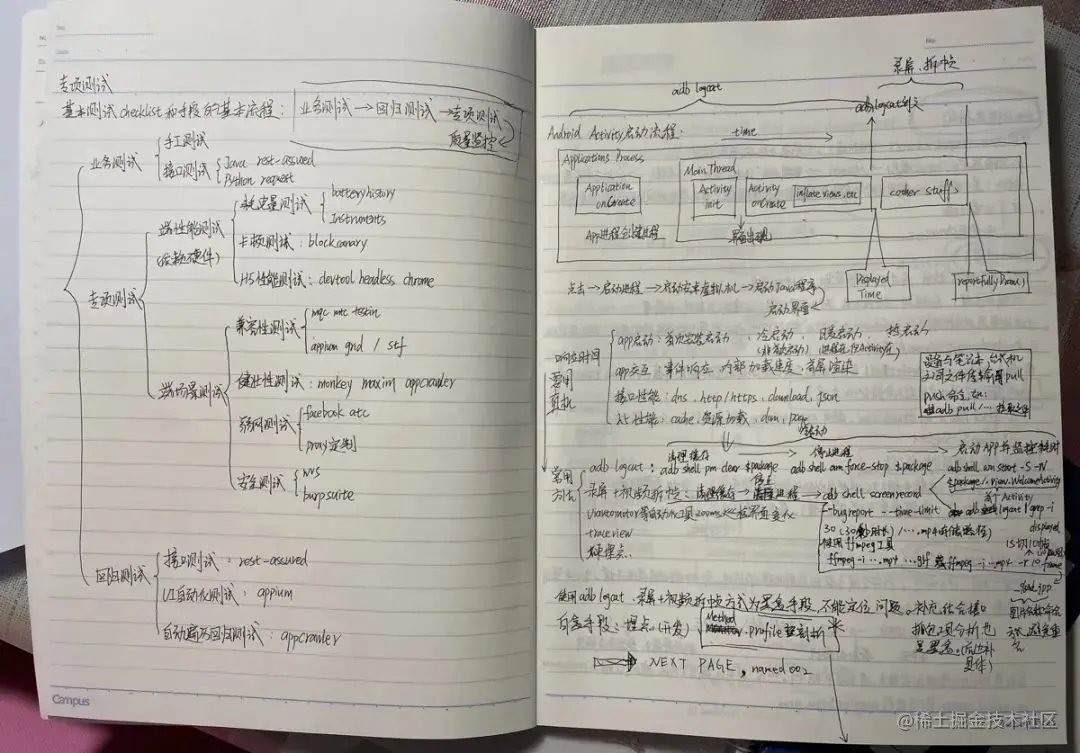 专项测试
基本测试checklist和手段的基本流程: 业务测试→回归测试→专项测试
质量监控
业务测试
手工测试
接口测试
Java rest-assured
Python request
专项测试
端性能测试
(依赖硬件)
耗电量测试
batteryhistory
Instruments
卡顿测试: blockcanary
H5性能测试: devtool headless chrome
端场景测试
兼容性测试
mqc mtc testin
appium grid / stf
健壮性测试: monkey maxim appcrawler
弱网测试
facebook atc
proxy定制
安全测试
wvs
burpsuite
回归测试
接口测试: rest-assured
UI自动化测试: appium
自动遍历回归测试: appcrawler
Campus
No.
录屏、拆帧
adb logcat
adb logcat
Android Activity启动流程:
time
Applications Process
Application
onCreate
App进程创建进程
Main Thread
Activity
init
Activity
onCreate
inflate views, etc
other stuffs
Displayed
Time
reportFullyDrawn()
点击→启动进程→启动安卓虚拟机→启动Java程序
启动界面
响应时间
app启动: 首次安装启动、冷启动、暖启动、热启动
(非首次启动) (进程在,但Activity在)
要用
真机
app交互: 事件响应、内部加载速度、首屏渲染
接口性能: dns、http/https、download、json
H5性能: cache、资源加载、dom、page
设备与笔记本、台式机
之间文件传输用pull
push命令,如:
adb pull /…
冷启动
清理缓存
停止进程
启动APP并监控耗时
常用
方法
adb logcat: adb shell pm clear $package
adb shell am force-stop $package
adb shell am start -S -W
$package/.view.WelcomeActivity
首个Activity
录屏+视频拆帧: 清理缓存→停止进程→adb shell screenrecord
--bugreport --time-limit
30 (30秒时长) /….mp4
adb logcat | grep -i
displayed
uiautomator等自动化工具200ms
traceview
硬埋点
使用ffmpeg工具
ffmpeg -i ….mp4 ….gif 或ffmpeg -i ….mp4 -r 10 frame
使用adb logcat、录屏+视频拆帧方式为黑盒手段,不能定位问题。补充结合接口
抓包
分析也
是黑盒。
白盒手段: 埋点(开发)
Method
profile
NEXT PAGE, named 002
@稀土掘金技术社区